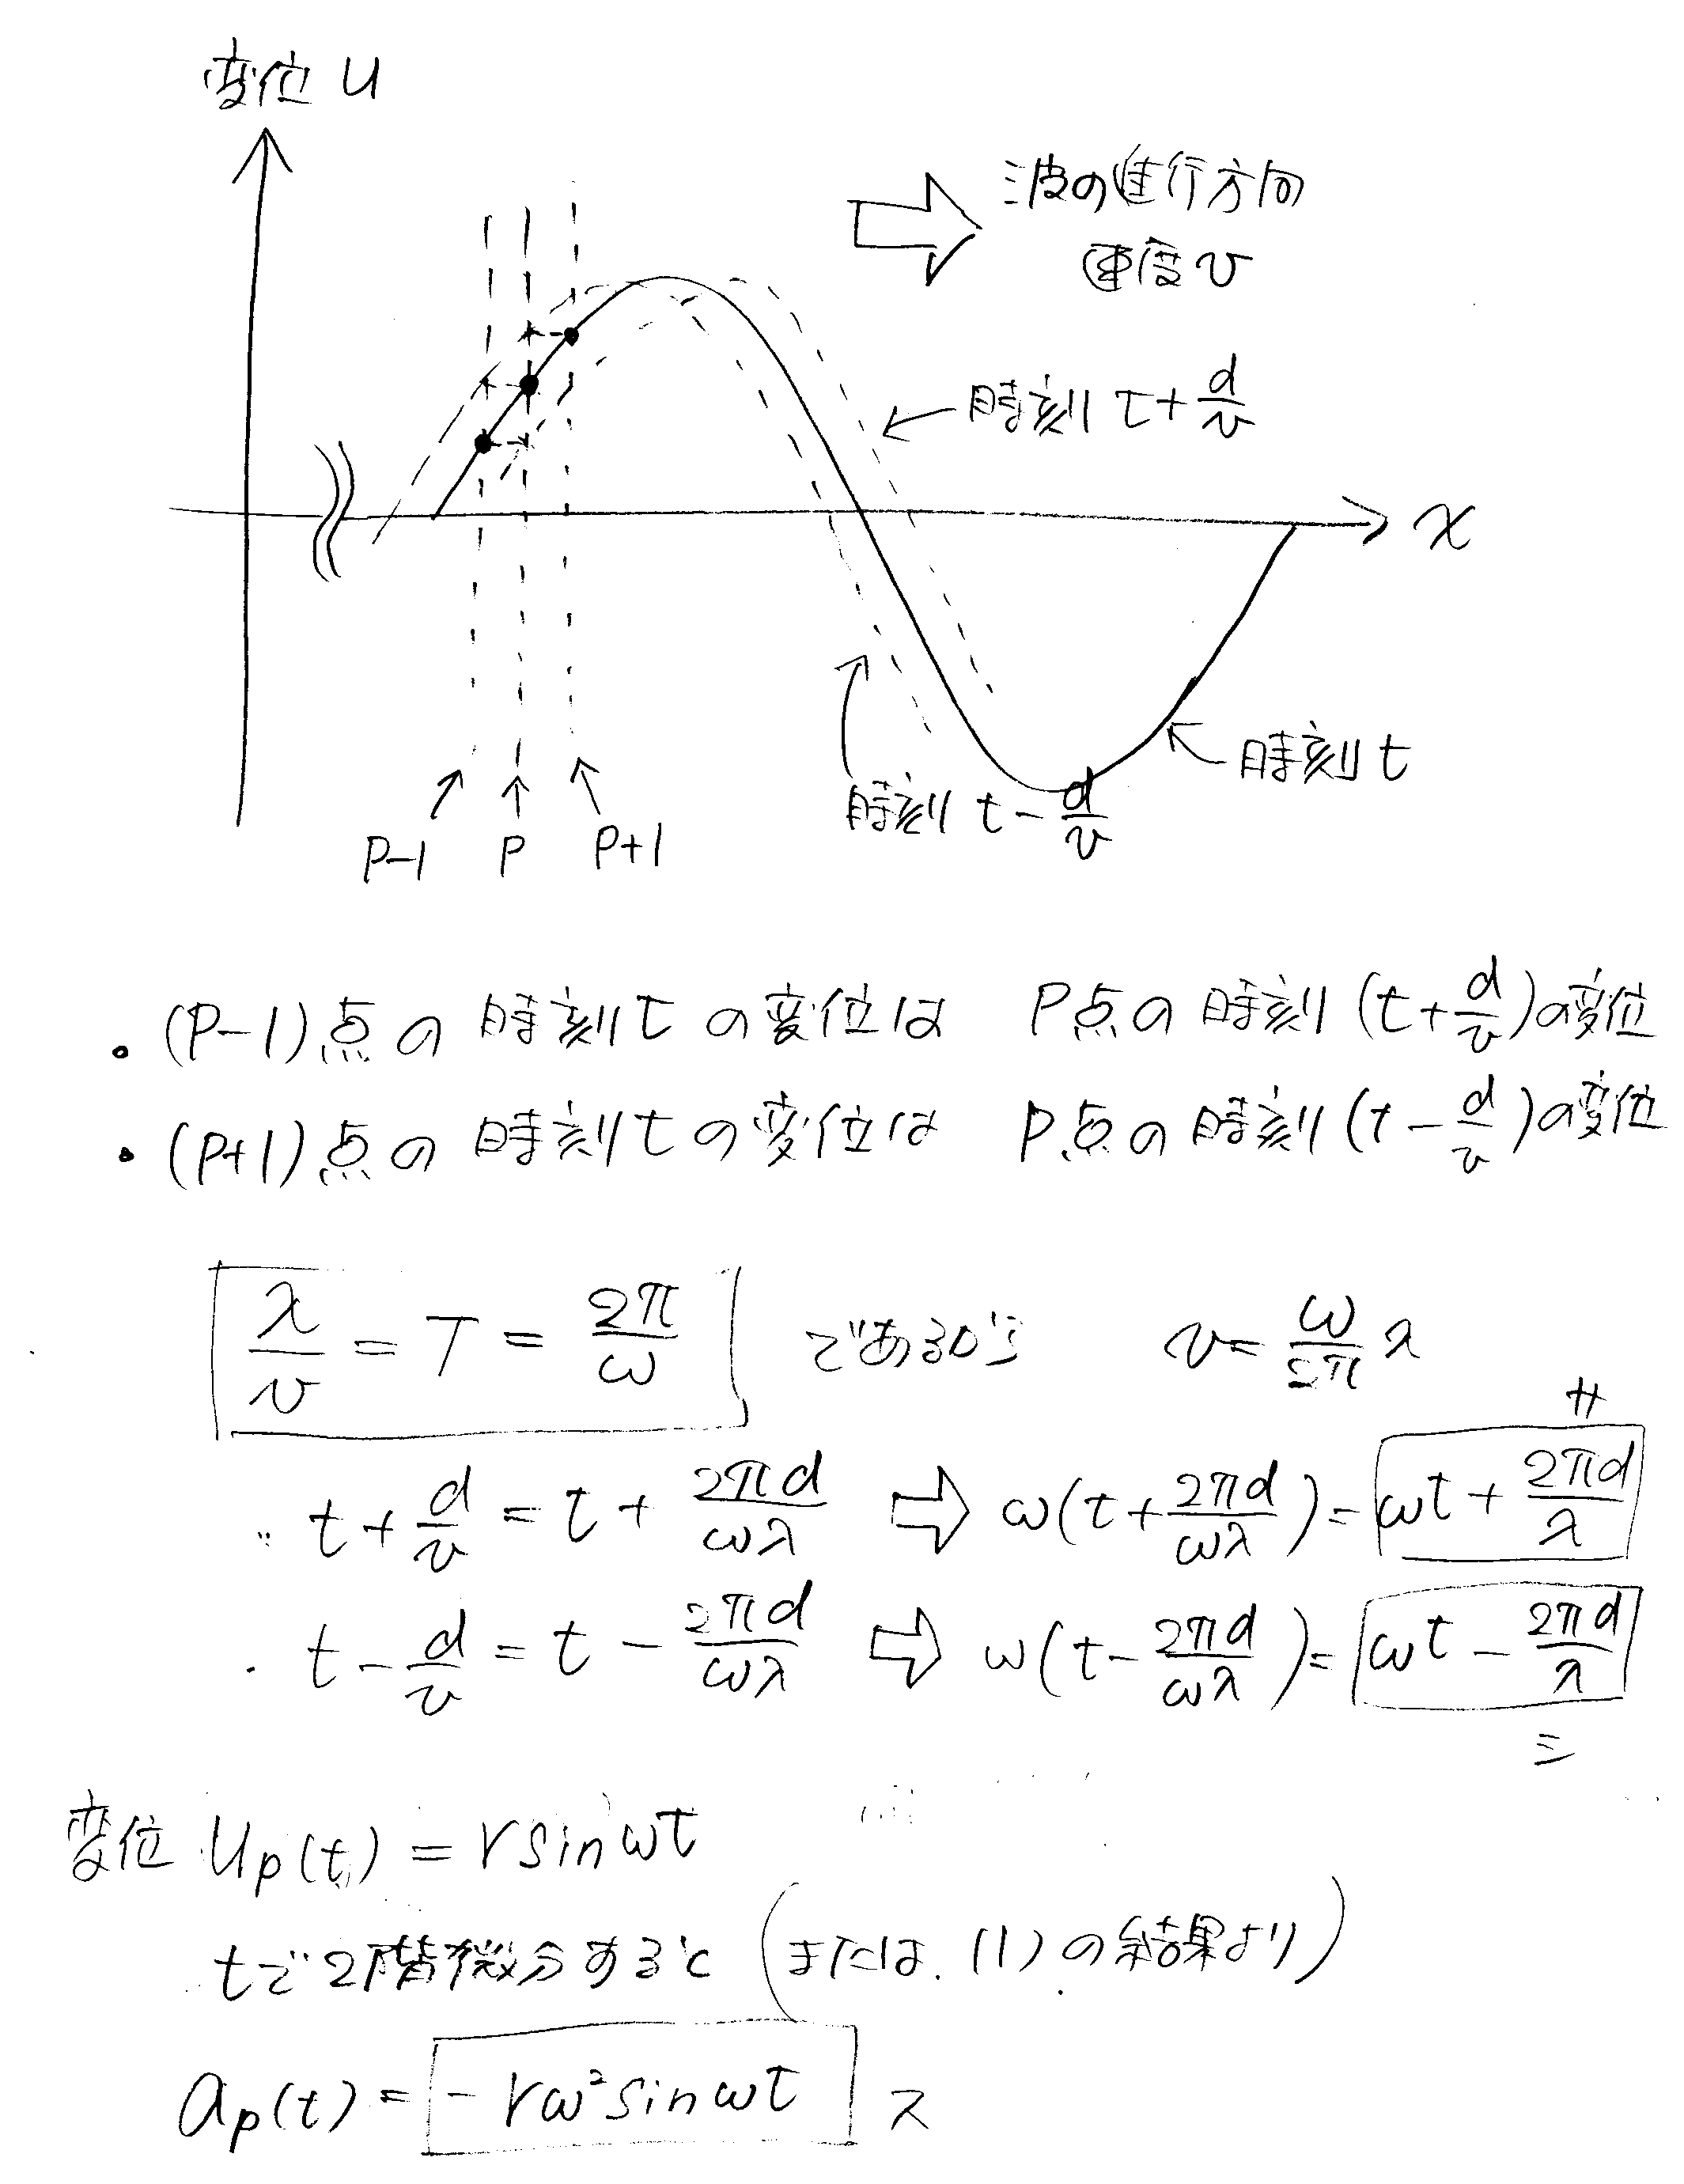 変位 u
波の進行方向
速度 v
時刻 t + d/v
x
時刻 t
時刻 t - d/v
P-1 P P+1
・(P-1)点の 時刻 t の変位は P点の 時刻 (t + d/v)の変位
・(P+1)点の 時刻 t の変位は P点の 時刻 (t - d/v)の変位
λ/v = T = 2π/ω であるから v = ω/2π λ
サ
∴ t + d/v = t + 2πd/ωλ ⇨ ω(t + 2πd/ωλ) = ωt + 2πd/λ
・ t - d/v = t - 2πd/ωλ ⇨ ω(t - 2πd/ωλ) = ωt - 2πd/λ
シ
変位 up(t) = r sin ωt
tで2階微分すると (または、(1)の結果より)
ap(t) = - rω² sin ωt ス